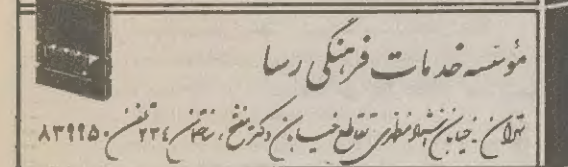 مؤسسه خدمات فرهنگی رسا
تهران: خیابان استاد مطهری تقاطع خیابان دکتر مفتح، ساختمان ۲۳۴ تلفن ۸۳۹۹۵۰